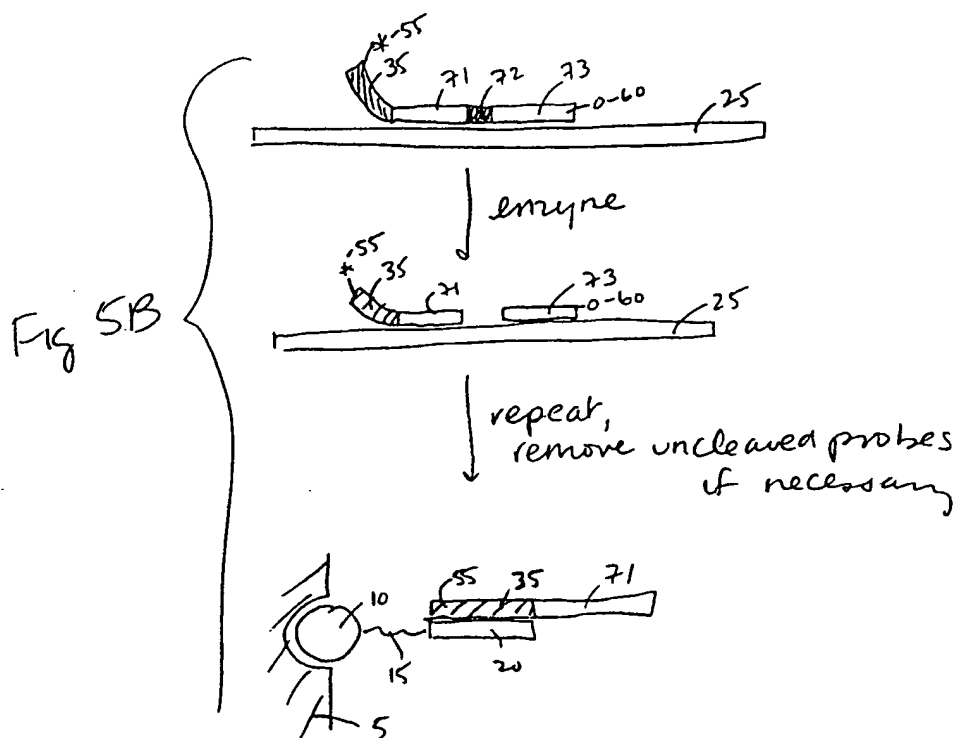 *-55
35
71
72
73
0-60
25
enzyne
*-55
35
71
73
0-60
25
Fig 5B
repeat,
remove uncleaved probes
if necessary
55
35
71
10
15
20
5